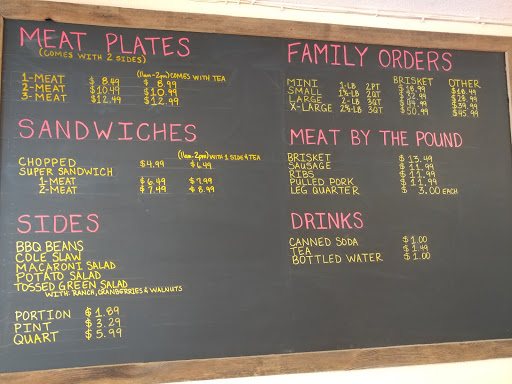 MEAT PLATES
(COMES WITH 2 SIDES)
(11am-2pm) COMES WITH TEA
1-MEAT $8.49 $8.99
2-MEAT $10.49 $10.99
3-MEAT $12.49 $12.99
SANDWICHES
(11am-2pm) WITH 1 SIDE & TEA
CHOPPED $4.99 $6.49
SUPER SANDWICH
1-MEAT $6.49 $7.99
2-MEAT $7.49 $8.99
SIDES
BBQ BEANS
COLE SLAW
MACARONI SALAD
POTATO SALAD
TOSSED GREEN SALAD
WITH RANCH, CRANBERRIES & WALNUTS
PORTION $1.89
PINT $3.29
QUART $5.99
FAMILY ORDERS
BRISKET OTHER
MINI 1-LB 2PT $18.99 $18.49
SMALL 1½-LB 2QT $32.99 $28.99
LARGE 2-LB 3QT $39.99
X-LARGE 2½-LB 3QT $50.99 $45.99
MEAT BY THE POUND
BRISKET $13.49
SAUSAGE $11.99
RIBS $11.99
PULLED PORK $11.99
LEG QUARTER $3.00 EACH
DRINKS
CANNED SODA $1.00
TEA $1.49
BOTTLED WATER $1.00